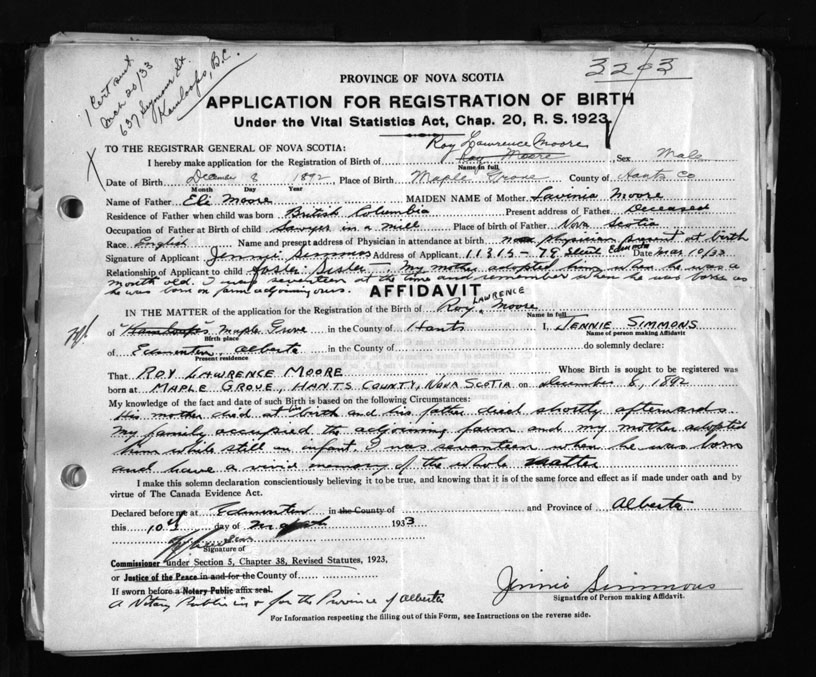 1 Cert sent.
Mch 20/33
637 Seymour St.
Kamloops, B.C.
3203
PROVINCE OF NOVA SCOTIA
APPLICATION FOR REGISTRATION OF BIRTH
Under the Vital Statistics Act, Chap. 20, R. S. 1923
TO THE REGISTRAR GENERAL OF NOVA SCOTIA:
Roy Lawrence Moore
I hereby make application for the Registration of Birth of Roy Moore, Sex Male
Name in full
Date of Birth December 8 1892, Place of Birth Maple Grove County of Hants Co
Month Day Year
Name of Father Eli Moore MAIDEN NAME of Mother Lavinia Moore
Residence of Father when child was born British Columbia Present address of Father Deceased
Occupation of Father at Birth of child Sawyer in a mill Place of birth of Father Nova Scotia
Race English Name and present address of Physician in attendance at birth no physician present at birth
Signature of Applicant Jennie Simmons Address of Applicant 11315-79 Street Edmonton Date Mar 10/33
Relationship of Applicant to child foster sister. My mother adopted him when he was a
month old. I was seventeen at the time and remember when he was born as
he was born on farm adjoining ours.
AFFIDAVIT
IN THE MATTER of the application for the Registration of the Birth of Roy LAWRENCE Moore
Name in full
of Kamloops Maple Grove in the County of Hants I, JENNIE SIMMONS
Birth place Name of person making Affidavit
of Edmonton, Alberta do solemnly declare:
Present residence
That ROY LAWRENCE MOORE Whose Birth is sought to be registered was
born at MAPLE GROVE, HANTS COUNTY, NOVA SCOTIA on December 8, 1892
My knowledge of the fact and date of such Birth is based on the following Circumstances:
His mother died at birth and his father died shortly afterwards
My family occupied the adjoining farm and my mother adopted
him while still an infant. I was seventeen when he was born
and have a vivid memory of the whole matter
I make this solemn declaration conscientiously believing it to be true, and knowing that it is of the same force and effect as if made under oath and by
virtue of The Canada Evidence Act.
Declared before me at Edmonton in the County of and Province of Alberta
this 10th day of March 1933
Signature of
Commissioner under Section 5, Chapter 38, Revised Statutes, 1923,
or Justice of the Peace in and for the County of
If sworn before a Notary Public affix seal.
A Notary Public in & for the Province of Alberta
Jennie Simmons
Signature of Person making Affidavit.
For Information respecting the filling out of this Form, see Instructions on the reverse side.